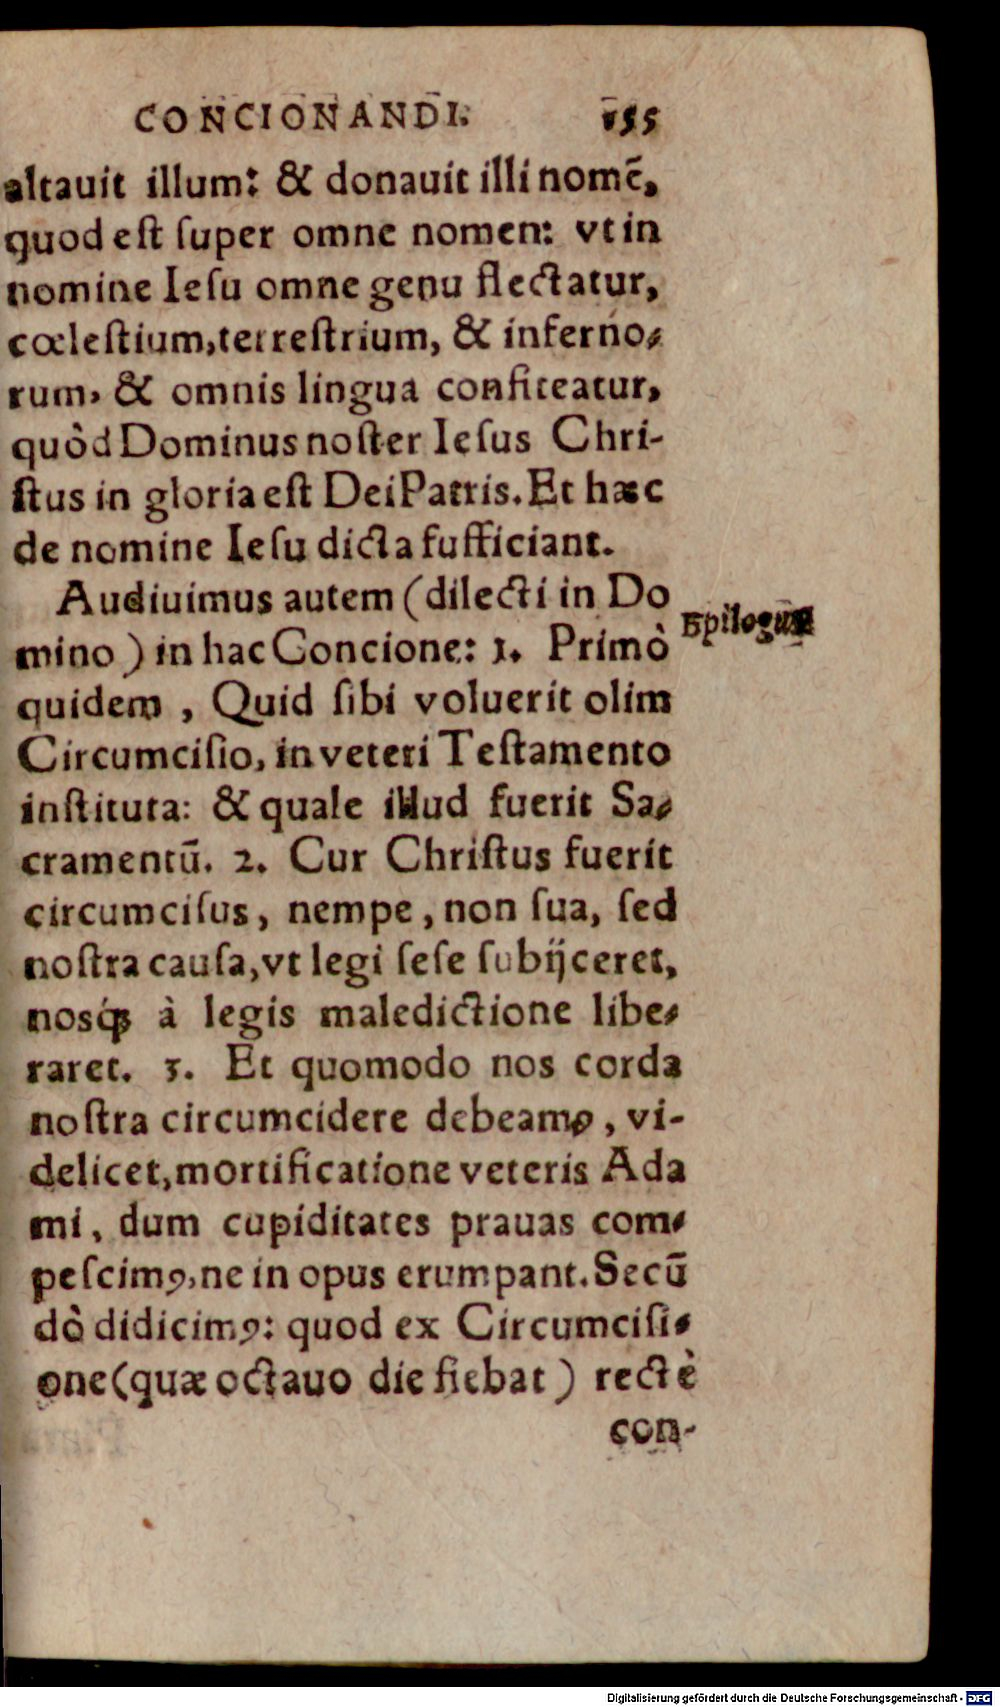 CONCIONANDI. 155
altauit illum: & donauit illi nomē,
quod est super omne nomen: vt in
nomine Iesu omne genu flectatur,
cœlestium, terrestrium, & inferno-
rum, & omnis lingua confiteatur,
quòd Dominus noster Iesus Chri-
stus in gloria est Dei Patris. Et hæc
de nomine Iesu dicta sufficiant.
Audiuimus autem (dilecti in Do
mino) in hac Concione: 1. Primò
Epilogus
quidem, Quid sibi voluerit olim
Circumcisio, in veteri Testamento
instituta: & quale illud fuerit Sa-
cramentū. 2. Cur Christus fuerit
circumcisus, nempe, non sua, sed
nostra causa, vt legi sese subijceret,
nosq́ꝫ à legis maledictione libe-
raret. 3. Et quomodo nos corda
nostra circumcidere debeamꝰ, vi-
delicet, mortificatione veteris Ada
mi, dum cupiditates prauas com-
pescimꝰ, ne in opus erumpant. Secū
dò didicimꝰ: quod ex Circumcisi-
one (quæ octauo die fiebat) rectè
con-
Digitalisierung gefördert durch die Deutsche Forschungsgemeinschaft - DFG